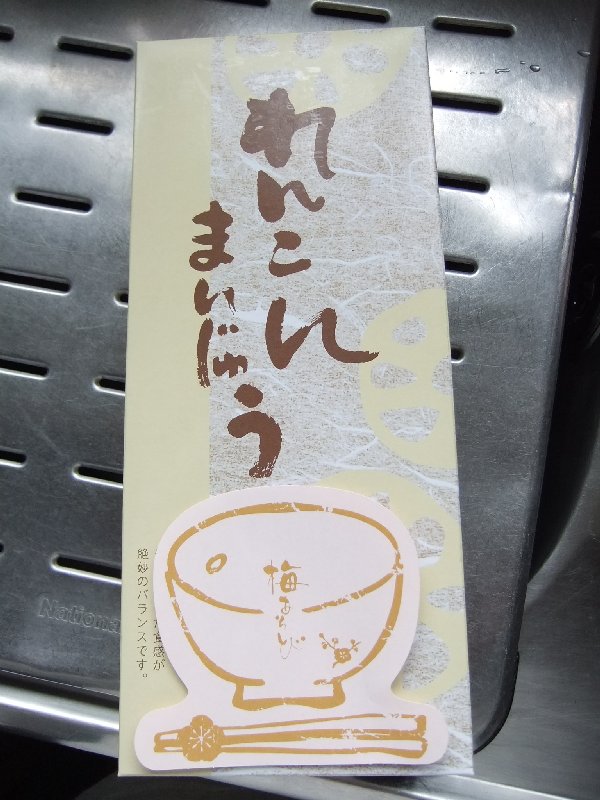 れんこん
まんじゅう
梅あそび
食感が
絶妙のバランスです。
National